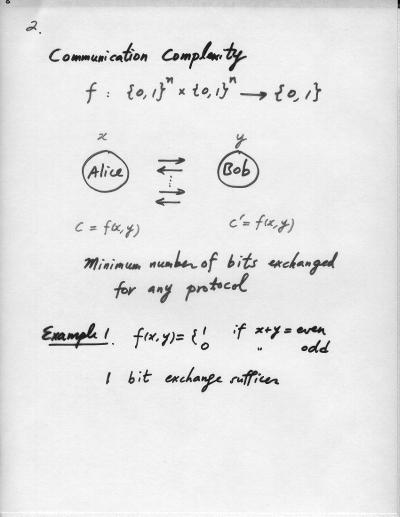 2.
Communication Complexity
f : {0,1}ⁿ × {0,1}ⁿ → {0,1}
x y
Alice ⇄ Bob
⋮
⇄
C = f(x,y) C' = f(x,y)
Minimum number of bits exchanged
for any protocol
Example 1. f(x,y) = { 1 if x+y = even
0 " odd
1 bit exchange suffices